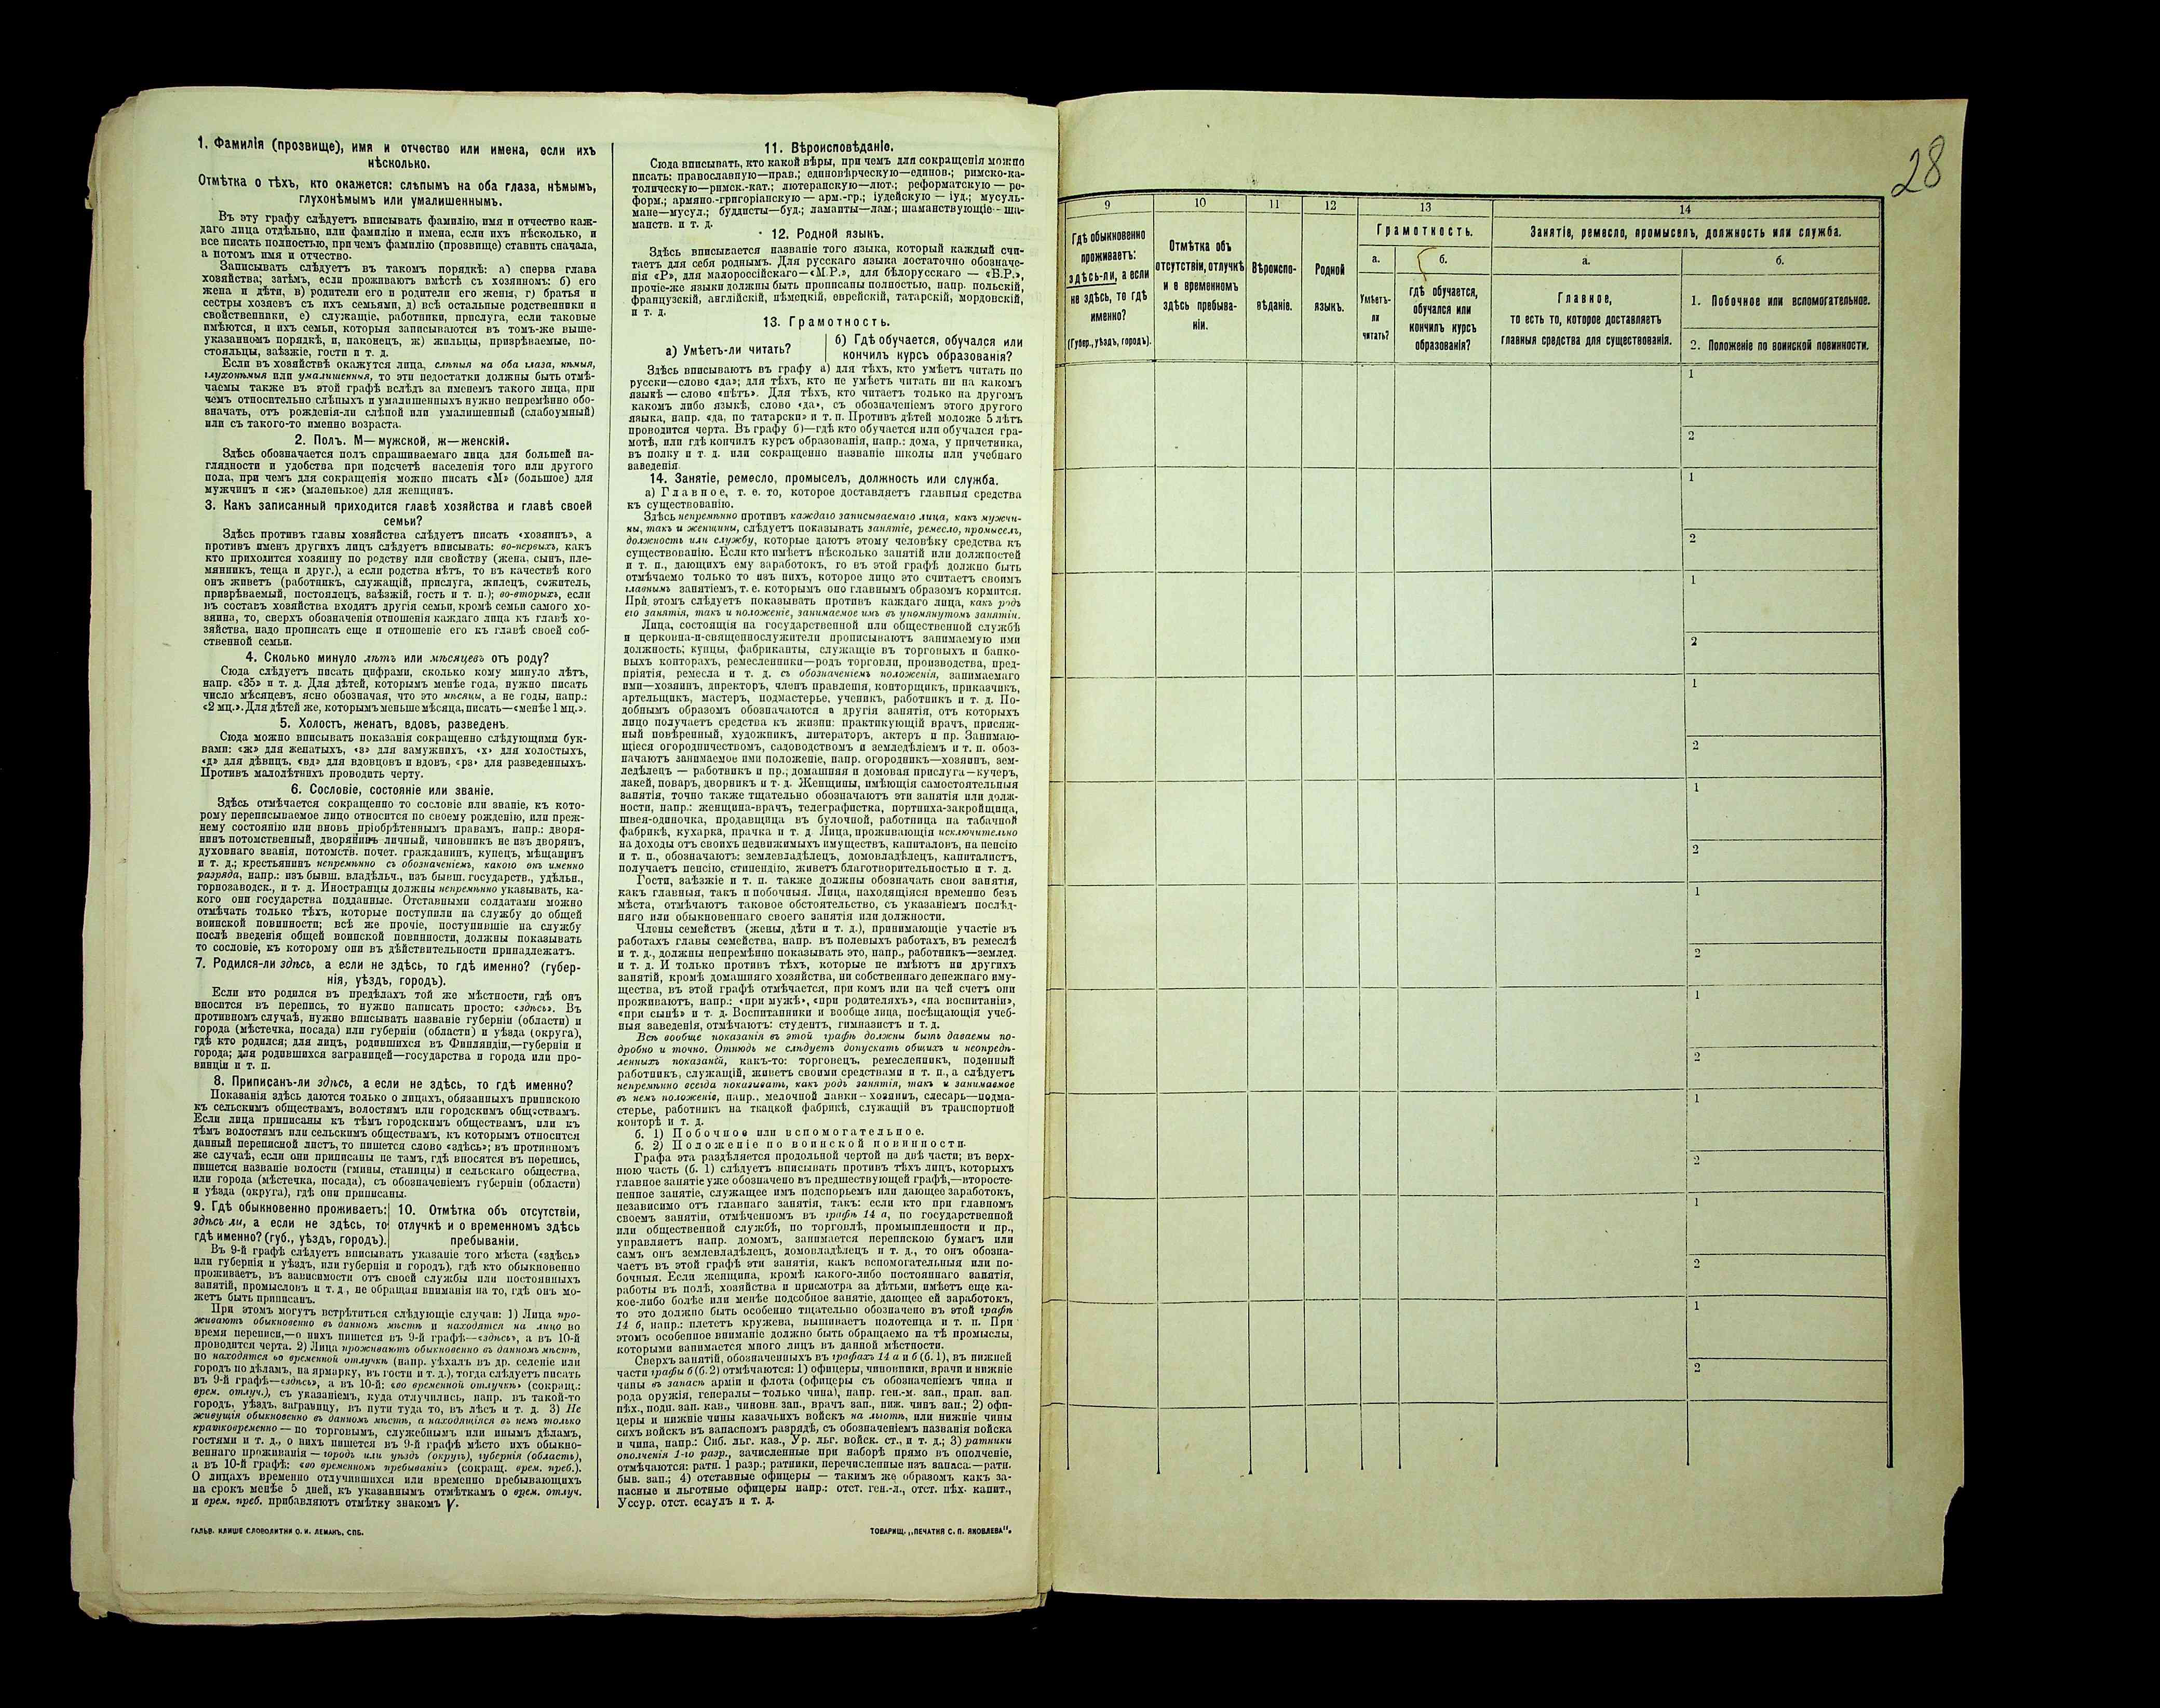 1. Фамилія (прозвище), имя и отчество или имена, если ихъ
нѣсколько.
Отмѣтка о тѣхъ, кто окажется: слѣпымъ на оба глаза, нѣмымъ,
глухонѣмымъ или умалишеннымъ.
Въ эту графу слѣдуетъ вписывать фамилію, имя и отчество каж-
даго лица отдѣльно, или фамилію и имена, если ихъ нѣсколько, и
все писать полностью, при чемъ фамилію (прозвище) ставить сначала,
а потомъ имя и отчество.
Записывать слѣдуетъ въ такомъ порядкѣ: а) сперва глава
хозяйства; затѣмъ, если проживаютъ вмѣстѣ съ хозяиномъ: б) его
жена и дѣти, в) родители его и родители его жены, г) братья и
сестры хозяевъ съ ихъ семьями, д) всѣ остальные родственники и
свойственники, е) служащіе, работники, прислуга, если таковые
имѣются, и ихъ семьи, которыя записываются въ томъ-же выше-
указанномъ порядкѣ, и, наконецъ, ж) жильцы, призрѣваемые, по-
стояльцы, заѣзжіе, гости и т. д.
Если въ хозяйствѣ окажутся лица, слѣпыя на оба глаза, нѣмыя,
глухонѣмыя или умалишенныя, то эти недостатки должны быть отмѣ-
чаемы также въ этой графѣ вслѣдъ за именемъ такого лица, при
чемъ относительно слѣпыхъ и умалишенныхъ нужно непремѣнно обо-
значать, отъ рожденія-ли слѣпой или умалишенный (слабоумный)
или съ такого-то именно возраста.
2. Полъ. М—мужской, ж—женскій.
Здѣсь обозначается полъ спрашиваемаго лица для большей на-
глядности и удобства при подсчетѣ населенія того или другого
пола, при чемъ для сокращенія можно писать «М» (большое) для
мужчинъ и «ж» (маленькое) для женщинъ.
3. Какъ записанный приходится главѣ хозяйства и главѣ своей
семьи?
Здѣсь противъ главы хозяйства слѣдуетъ писать «хозяинъ», а
противъ именъ другихъ лицъ слѣдуетъ вписывать: во-первыхъ, какъ
кто приходится хозяину по родству или свойству (жена, сынъ, пле-
мянникъ, теща и друг.), а если родства нѣтъ, то въ качествѣ кого
онъ живетъ (работникъ, служащій, прислуга, жилецъ, сожитель,
призрѣваемый, постоялецъ, заѣзжій, гость и т. п.); во-вторыхъ, если
въ составъ хозяйства входятъ другія семьи, кромѣ семьи самого хо-
зяина, то, сверхъ обозначенія отношенія каждаго лица къ главѣ хо-
зяйства, надо прописать еще и отношеніе его къ главѣ своей соб-
ственной семьи.
4. Сколько минуло лѣтъ или мѣсяцевъ отъ роду?
Сюда слѣдуетъ писать цифрами, сколько кому минуло лѣтъ,
напр. «35» и т. д. Для дѣтей, которымъ менѣе года, нужно писать
число мѣсяцевъ, ясно обозначая, что это мѣсяцы, а не годы, напр.:
«2 мц.». Для дѣтей же, которымъ меньше мѣсяца, писать—«менѣе 1 мц.».
5. Холостъ, женатъ, вдовъ, разведенъ.
Сюда можно вписывать показанія сокращенно слѣдующими бук-
вами: «ж» для женатыхъ, «з» для замужнихъ, «х» для холостыхъ,
«д» для дѣвицъ, «вд» для вдовцовъ и вдовъ, «рз» для разведенныхъ.
Противъ малолѣтнихъ проводить черту.
6. Сословіе, состояніе или званіе.
Здѣсь отмѣчается сокращенно то сословіе или званіе, къ кото-
рому переписываемое лицо относится по своему рожденію, или преж-
нему состоянію или вновь пріобрѣтеннымъ правамъ, напр.: дворя-
нинъ потомственный, дворянинъ личный, чиновникъ не изъ дворянъ,
духовнаго званія, потомств. почет. гражданинъ, купецъ, мѣщанинъ
и т. д.; крестьянинъ непремѣнно съ обозначеніемъ, какого онъ именно
разряда, напр.: изъ бывш. владѣльч., изъ бывш. государств., удѣльн.,
горнозаводск., и т. д. Иностранцы должны непремѣнно указывать, ка-
кого они государства подданные. Отставными солдатами можно
отмѣчать только тѣхъ, которые поступили на службу до общей
воинской повинности; всѣ же прочіе, поступившіе на службу
послѣ введенія общей воинской повинности, должны показывать
то сословіе, къ которому они въ дѣйствительности принадлежатъ.
7. Родился-ли здѣсь, а если не здѣсь, то гдѣ именно? (губер-
нія, уѣздъ, городъ).
Если кто родился въ предѣлахъ той же мѣстности, гдѣ онъ
вносится въ перепись, то нужно написать просто: «здѣсь». Въ
противномъ случаѣ, нужно вписывать названіе губерніи (области) и
города (мѣстечка, посада) или губерніи (области) и уѣзда (округа),
гдѣ кто родился; для лицъ, родившихся въ Финляндіи,—губерніи и
города; для родившихся заграницей—государства и города или про-
винціи и т. п.
8. Приписанъ-ли здѣсь, а если не здѣсь, то гдѣ именно?
Показанія здѣсь даются только о лицахъ, обязанныхъ припискою
къ сельскимъ обществамъ, волостямъ или городскимъ обществамъ.
Если лица приписаны къ тѣмъ городскимъ обществамъ, или къ
тѣмъ волостямъ или сельскимъ обществамъ, къ которымъ относится
данный переписной листъ, то пишется слово «здѣсь»; въ противномъ
же случаѣ, если они приписаны не тамъ, гдѣ вносятся въ перепись,
пишется названіе волости (гмины, станицы) и сельскаго общества,
или города (мѣстечка, посада), съ обозначеніемъ губерніи (области)
и уѣзда (округа), гдѣ они приписаны.
9. Гдѣ обыкновенно проживаетъ:
здѣсь ли, а если не здѣсь, то
гдѣ именно? (губ., уѣздъ, городъ).
10. Отмѣтка объ отсутствіи,
отлучкѣ и о временномъ здѣсь
пребываніи.
Въ 9-й графѣ слѣдуетъ вписывать указаніе того мѣста («здѣсь»
или губернія и уѣздъ, или губернія и городъ), гдѣ кто обыкновенно
проживаетъ, въ зависимости отъ своей службы или постоянныхъ
занятій, промысловъ и т. д., не обращая вниманія на то, гдѣ онъ мо-
жетъ быть приписанъ.
При этомъ могутъ встрѣтиться слѣдующіе случаи: 1) Лица про-
живаютъ обыкновенно въ данномъ мѣстѣ и находятся на лицо во
время переписи,—о нихъ пишется въ 9-й графѣ—«здѣсь», а въ 10-й
проводится черта. 2) Лица проживаютъ обыкновенно въ данномъ мѣстѣ,
но находятся во временной отлучкѣ (напр. уѣхалъ въ др. селеніе или
городъ по дѣламъ, на ярмарку, въ гости и т. д.), тогда слѣдуетъ писать
въ 9-й графѣ—«здѣсь», а въ 10-й: «во временной отлучкѣ» (сокращ.:
врем. отлуч.), съ указаніемъ, куда отлучились, напр. въ такой-то
городъ, уѣздъ, заграницу, въ пути туда то, въ лѣсъ и т. д. 3) Не
живущія обыкновенно въ данномъ мѣстѣ, а находящіяся въ немъ только
кратковременно — по торговымъ, служебнымъ или инымъ дѣламъ,
гостями и т. д., о нихъ пишется въ 9-й графѣ мѣсто ихъ обыкно-
веннаго проживанія — городъ или уѣздъ (округъ), губернія (область),
а въ 10-й графѣ: «во временномъ пребываніи» (сокращ. врем. преб.).
О лицахъ временно отлучившихся или временно пребывающихъ
на срокъ менѣе 5 дней, къ указаннымъ отмѣткамъ о врем. отлуч.
и врем. преб. прибавляютъ отмѣтку знакомъ V.
ГАЛЬВ. КЛИШЕ СЛОВОЛИТНИ О. И. ЛЕМАНЪ, СПБ.
11. Вѣроисповѣданіе.
Сюда вписывать, кто какой вѣры, при чемъ для сокращенія можно
писать: православную—прав.; единовѣрческую—единов.; римско-ка-
толическую—римск.-кат.; лютеранскую—лют.; реформатскую — ре-
форм.; армяно.-григоріанскую — арм.-гр.; іудейскую — іуд.; мусуль-
мане—мусул.; буддисты—буд.; ламаиты—лам.; шаманствующіе—ша-
манств. и т. д.
12. Родной языкъ.
Здѣсь вписывается названіе того языка, который каждый счи-
таетъ для себя роднымъ. Для русскаго языка достаточно обозначе-
нія «Р», для малороссійскаго—«М.Р.», для бѣлорусскаго — «Б.Р.»,
прочіе-же языки должны быть прописаны полностью, напр. польскій,
французскій, англійскій, нѣмецкій, еврейскій, татарскій, мордовскій,
и т. д.
13. Грамотность.
а) Умѣетъ-ли читать?
б) Гдѣ обучается, обучался или
кончилъ курсъ образованія?
Здѣсь вписываютъ въ графу а) для тѣхъ, кто умѣетъ читать по
русски—слово «да»; для тѣхъ, кто не умѣетъ читать ни на какомъ
языкѣ — слово «нѣтъ». Для тѣхъ, кто читаетъ только на другомъ
какомъ либо языкѣ, слово «да», съ обозначеніемъ этого другого
языка, напр. «да, по татарски» и т. п. Противъ дѣтей моложе 5 лѣтъ
проводится черта. Въ графу б)—гдѣ кто обучается или обучался гра-
мотѣ, или гдѣ кончилъ курсъ образованія, напр.: дома, у причетника,
въ полку и т. д. или сокращенно названіе школы или учебнаго
заведенія.
14. Занятіе, ремесло, промыселъ, должность или служба.
а) Главное, т. е. то, которое доставляетъ главныя средства
къ существованію.
Здѣсь непремѣнно противъ каждаго записываемаго лица, какъ мужчи-
ны, такъ и женщины, слѣдуетъ показывать занятіе, ремесло, промыселъ,
должность или службу, которые даютъ этому человѣку средства къ
существованію. Если кто имѣетъ нѣсколько занятій или должностей
и т. п., дающихъ ему заработокъ, то въ этой графѣ должно быть
отмѣчаемо только то изъ нихъ, которое лицо это считаетъ своимъ
главнымъ занятіемъ, т. е. которымъ оно главнымъ образомъ кормится.
При этомъ слѣдуетъ показывать противъ каждаго лица, какъ родъ
его занятія, такъ и положеніе, занимаемое имъ въ упомянутомъ занятіи.
Лица, состоящія на государственной или общественной службѣ
и церковно-и-священнослужители прописываютъ занимаемую ими
должность; купцы, фабриканты, служащіе въ торговыхъ и банко-
выхъ конторахъ, ремесленники—родъ торговли, производства, пред-
пріятія, ремесла и т. д. съ обозначеніемъ положенія, занимаемаго
ими—хозяинъ, директоръ, членъ правленія, конторщикъ, приказчикъ,
артельщикъ, мастеръ, подмастерье, ученикъ, работникъ и т. д. По-
добнымъ образомъ обозначаются и другія занятія, отъ которыхъ
лицо получаетъ средства къ жизни: практикующій врачъ, присяж-
ный повѣренный, художникъ, литераторъ, актеръ и пр. Занимаю-
щіеся огородничествомъ, садоводствомъ и земледѣліемъ и т. п. обоз-
начаютъ занимаемое ими положеніе, напр. огородникъ—хозяинъ, зем-
ледѣлецъ — работникъ и пр.; домашняя и домовая прислуга—кучеръ,
лакей, поваръ, дворникъ и т. д. Женщины, имѣющія самостоятельныя
занятія, точно также тщательно обозначаютъ эти занятія или долж-
ности, напр.: женщина-врачъ, телеграфистка, портниха-закройщица,
швея-одиночка, продавщица въ булочной, работница на табачной
фабрикѣ, кухарка, прачка и т. д. Лица, проживающія исключительно
на доходы отъ своихъ недвижимыхъ имуществъ, капиталовъ, на пенсію
и т. п., обозначаютъ: землевладѣлецъ, домовладѣлецъ, капиталистъ,
получаетъ пенсію, стипендію, живетъ благотворительностью и т. д.
Гости, заѣзжіе и т. п. также должны обозначать свои занятія,
какъ главныя, такъ и побочныя. Лица, находящіяся временно безъ
мѣста, отмѣчаютъ таковое обстоятельство, съ указаніемъ послѣд-
няго или обыкновеннаго своего занятія или должности.
Члены семействъ (жены, дѣти и т. д.), принимающіе участіе въ
работахъ главы семейства, напр. въ полевыхъ работахъ, въ ремеслѣ
и т. д., должны непремѣнно показывать это, напр., работникъ—землед.
и т. д. И только противъ тѣхъ, которые не имѣютъ ни другихъ
занятій, кромѣ домашняго хозяйства, ни собственнаго денежнаго иму-
щества, въ этой графѣ отмѣчается, при комъ или на чей счетъ они
проживаютъ, напр.: «при мужѣ», «при родителяхъ», «на воспитаніи»,
«при сынѣ» и т. д. Воспитанники и вообще лица, посѣщающія учеб-
ныя заведенія, отмѣчаютъ: студентъ, гимназистъ и т. д.
Всѣ вообще показанія въ этой графѣ должны быть даваемы по-
дробно и точно. Отнюдь не слѣдуетъ допускать общихъ и неопредѣ-
ленныхъ показаній, какъ-то: торговецъ, ремесленникъ, поденный
работникъ, служащій, живетъ своими средствами и т. п., а слѣдуетъ
непремѣнно всегда показывать, какъ родъ занятія, такъ и занимаемое
въ немъ положеніе, напр., мелочной лавки—хозяинъ, слесарь—подма-
стерье, работникъ на ткацкой фабрикѣ, служащій въ транспортной
конторѣ и т. д.
б. 1) Побочное или вспомогательное.
б. 2) Положеніе по воинской повинности.
Графа эта раздѣляется продольной чертой на двѣ части; въ верх-
нюю часть (б. 1) слѣдуетъ вписывать противъ тѣхъ лицъ, которыхъ
главное занятіе уже обозначено въ предшествующей графѣ,—второсте-
пенное занятіе, служащее имъ подспорьемъ или дающее заработокъ,
независимо отъ главнаго занятія, такъ: если кто при главномъ
своемъ занятіи, отмѣченномъ въ графѣ 14 а, по государственной
или общественной службѣ, по торговлѣ, промышленности и пр.,
управляетъ напр. домомъ, занимается перепискою бумагъ или
самъ онъ землевладѣлецъ, домовладѣлецъ и т. д., то онъ обозна-
чаетъ въ этой графѣ эти занятія, какъ вспомогательныя или по-
бочныя. Если женщина, кромѣ какого-либо постояннаго занятія,
работы въ полѣ, хозяйства и присмотра за дѣтьми, имѣетъ еще ка-
кое-либо болѣе или менѣе подсобное занятіе, дающее ей заработокъ,
то это должно быть особенно тщательно обозначено въ этой графѣ
14 б, напр.: плететъ кружева, вышиваетъ полотенца и т. п. При
этомъ особенное вниманіе должно быть обращаемо на тѣ промыслы,
которыми занимается много лицъ въ данной мѣстности.
Сверхъ занятій, обозначенныхъ въ графахъ 14 а и б (б. 1), въ нижней
части графы б (б. 2) отмѣчаются: 1) офицеры, чиновники, врачи и нижніе
чины въ запасѣ арміи и флота (офицеры съ обозначеніемъ чина и
рода оружія, генералы—только чина), напр. ген.-м. зап., прап. зап.
пѣх., подп. зап. кав., чиновн. зап., врачъ зап., ниж. чинъ зап.; 2) офи-
церы и нижніе чины казачьихъ войскъ на льготѣ, или нижніе чины
сихъ войскъ въ запасномъ разрядѣ, съ обозначеніемъ названія войска
и чина, напр.: Сиб. льг. каз., Ур. льг. войск. ст., и т. д.; 3) ратники
ополченія 1-го разр., зачисленные при наборѣ прямо въ ополченіе,
отмѣчаются: ратн. 1 разр.; ратники, перечисленные изъ запаса.—ратн.
быв. зап.; 4) отставные офицеры — такимъ же образомъ какъ за-
пасные и льготные офицеры напр.: отст. ген.-л., отст. пѣх. капит.,
Уссур. отст. есаулъ и т. д.
ТОВАРИЩ. „ПЕЧАТНЯ С. П. ЯКОВЛЕВА“.
28
9
10
11
12
13
14
Гдѣ обыкновенно
проживаетъ:
здѣсь-ли, а если
не здѣсь, то гдѣ
именно?
(Губер., уѣздъ, городъ).
Отмѣтка объ
отсутствіи, отлучкѣ
и о временномъ
здѣсь пребыва-
ніи.
Вѣроиспо-
вѣданіе.
Родной
языкъ.
Грамотность.
а.
б.
Умѣетъ-
ли
читать?
гдѣ обучается,
обучался или
кончилъ курсъ
образованія?
Занятіе, ремесло, промыселъ, должность или служба.
а.
б.
Главное,
то есть то, которое доставляетъ
главныя средства для существованія.
1. Побочное или вспомогательное.
2. Положеніе по воинской повинности.
1
2
1
2
1
2
1
2
1
2
1
2
1
2
1
2
1
2
1
2